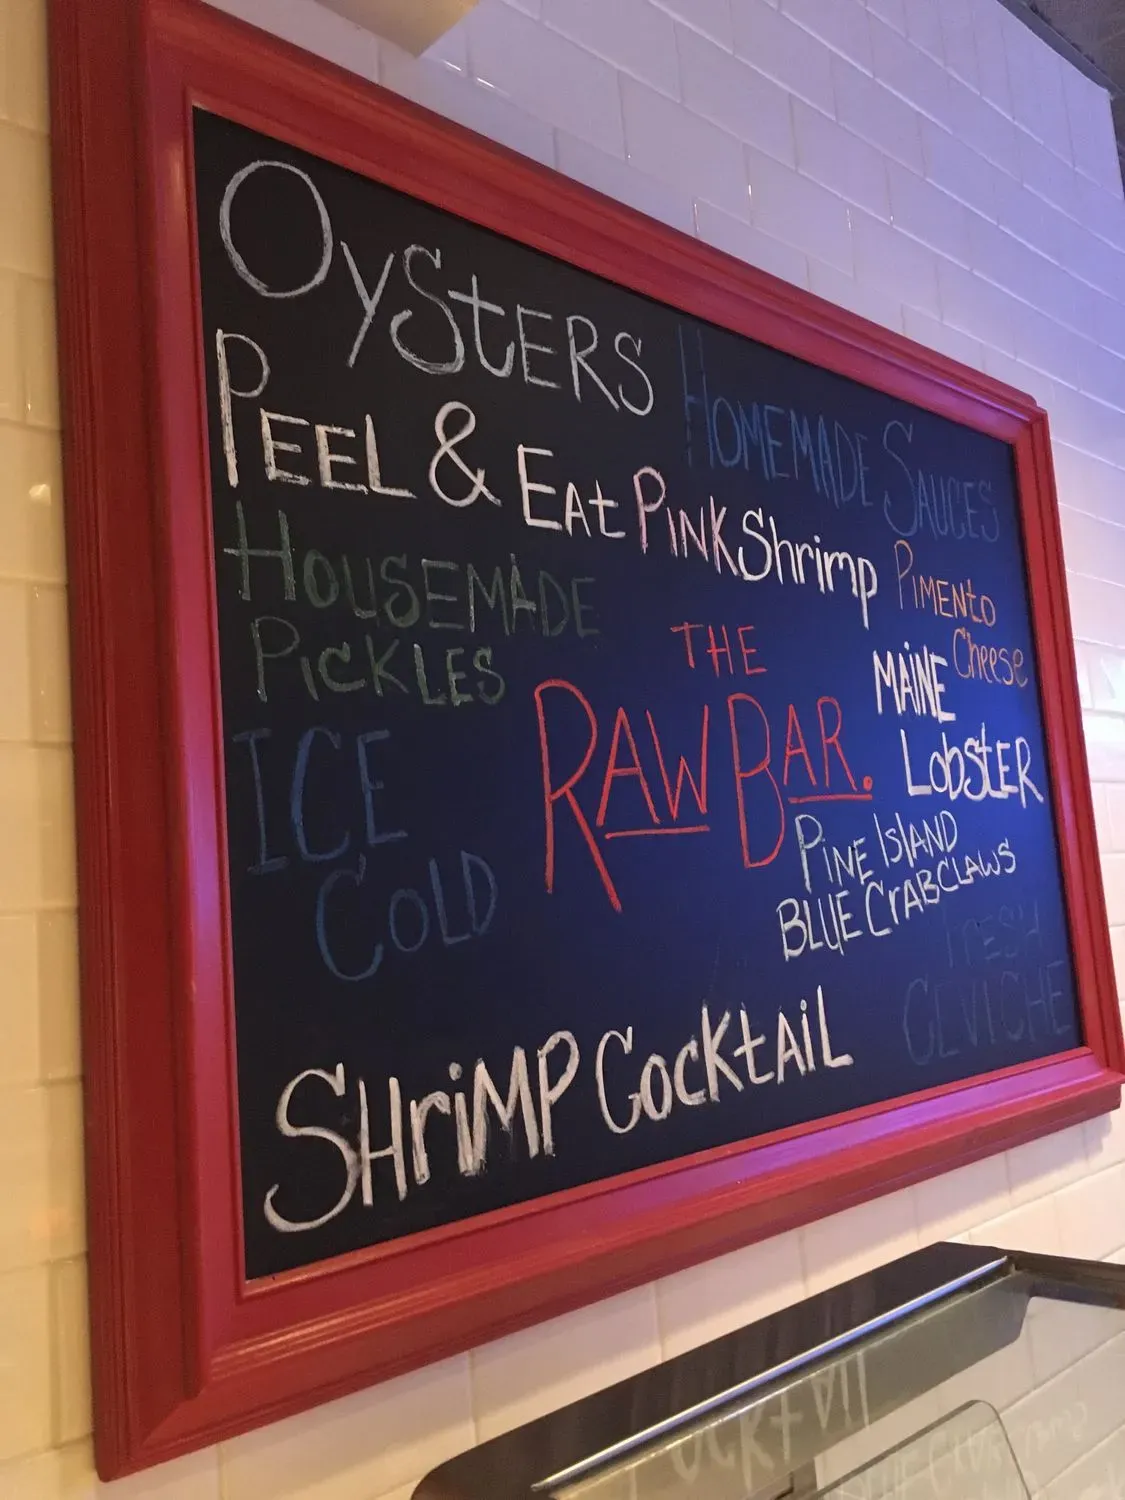 OyStERS
HOMEMADE SAUCES
PEEL & EAt PINK Shrimp
PIMENto
Cheese
HOUSEMADE
PiCKLES
THE
RAW BAR.
MAiNE
LobStER
ICE
COLD
PINE ISLAND
BLUE CrABCLAWS
FRESH
CEVICHE
SHriMP CocktAiL